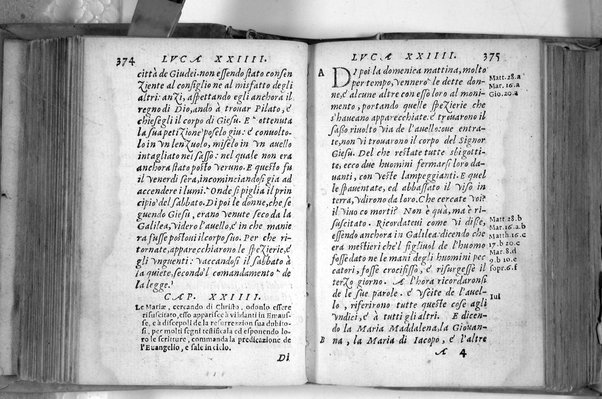 374 LVCÆ XXIIII.
città de Giudei. non essendo stato consen
ziente al consiglio ne al misfatto degli
altri: anzi, aspettando egli anchora il
regno di Dio, andò à trouar Pilato, e
chiesegli il corpo di Giesù. E ottenuta
la sua petizione poselo giu: e conuolto-
lo in vn lenzuolo, miselo in vn auello
intagliato nel sasso: nel quale non era
anchora stato posto veruno. E questo fu
il Venerdi sera, incominciandosi gia ad
accendere i lumi. Onde si piglia il prin
cipio del sabbato. Di poi le donne, che se
guendo Giesu, erano venute seco da la
Galilea, videro l'auello, e in che manie
ra fusse posto ui il corpo suo. Per che ri-
tornate, apparecchiarono le spezierie, e
gli vnguenti: vaccando si il sabbato à
la quiete, secondo'l comandamento de
la legge.
CAP. XXIIII.
Le Mariæ, cercando di Christo, odonlo essere
risuscitato, esso apparisce à vi ndanti in Emaus-
se, e à discepoli de la resurrezion sua dubito-
si, per molti segni testifica la ed esponendo lo-
ro le scritture, commanda la predicazione de
l'Euangelio, e sale in cielo.
Di
LVCÆ XXIIII. 375
A
DI poi la domenica mattina, molto
per tempo, vennero le dette don-
ne, e alcune altre con esso loro al moni-
mento, portando quelle spezierie che
s'haueano apparecchiate. e trouarono il
sasso riuolto via de l'auello: oue entra-
te, non vi trouarono il corpo del Signor
Giesù. Del che restate tutte sbigotti-
te, ecco due huomini fermarsi loro da-
uanti, con veste lampeggianti. E quel
le spauentate, ed abbassato il viso in
terra, vdirono da loro. Che cercate voi
il viuo co morti? Non è quà, ma è ri-
suscitato. Ricordateui come vi disse,
essendo anchora in Galilea: dicendo che
era mestieri che'l figliuol de l'huomo
fosse dato ne le mani degli huomini pec
catori, fosse crocifisso, e risurgesse il
terzo giorno. A l'hora ricordaronsi
de le sue parole. e vscite de l'auel-
lo, riferirono tutte queste cose agli
vndici, e à tutti gli altri. E dicen-
do la Maria Maddalena, la Giouan-
B na, la Maria di Iacopo, e l'altre
A 4
Matt. 28. a
Mar. 16. a
Gio. 20. a
Matt. 28. b
Mar. 16. a. b
Matt. 16. c
17. b 20. c
Mar. 8. d
9. b 10. c
sopr. 6. f
Iui